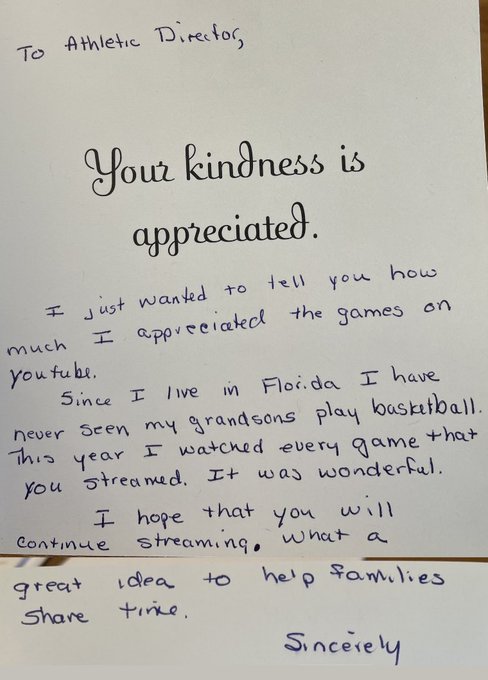 To Athletic Director,
Your kindness is
appreciated.
I just wanted to tell you how
much I appreciated the games on
youtube.
Since I live in Florida I have
never seen my grandsons play basketball.
This year I watched every game that
you streamed. It was wonderful.
I hope that you will
continue streaming. What a
great idea to help families
share time.
Sincerely